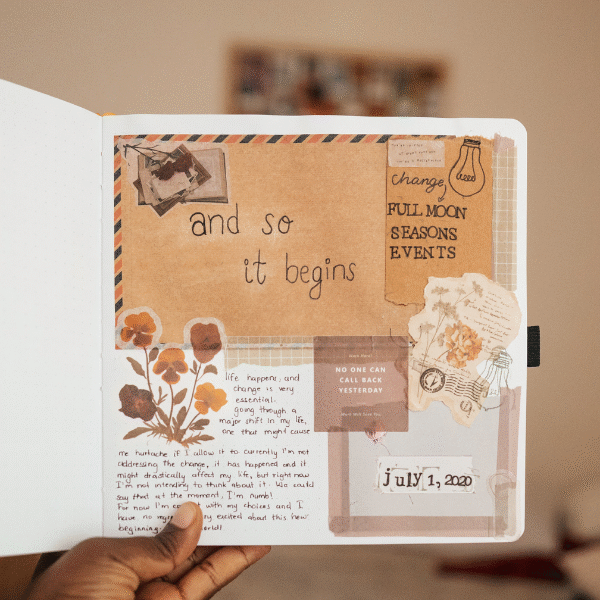 and so
it begins
change
FULL MOON
SEASONS
EVENTS
NO ONE CAN
CALL BACK
YESTERDAY
life happens, and
change is very
essential.
going through a
major shift in my life,
one that might cause
me hurtache if I allow it to currently I'm not
addressing the change, it has happened and it
might drastically affect my life, but right now
I'm not intending to think about it. We could
say that at the moment, I'm numb!
For now I'm with my choices and I
have no excited about this new
beginning.
july 1, 2020